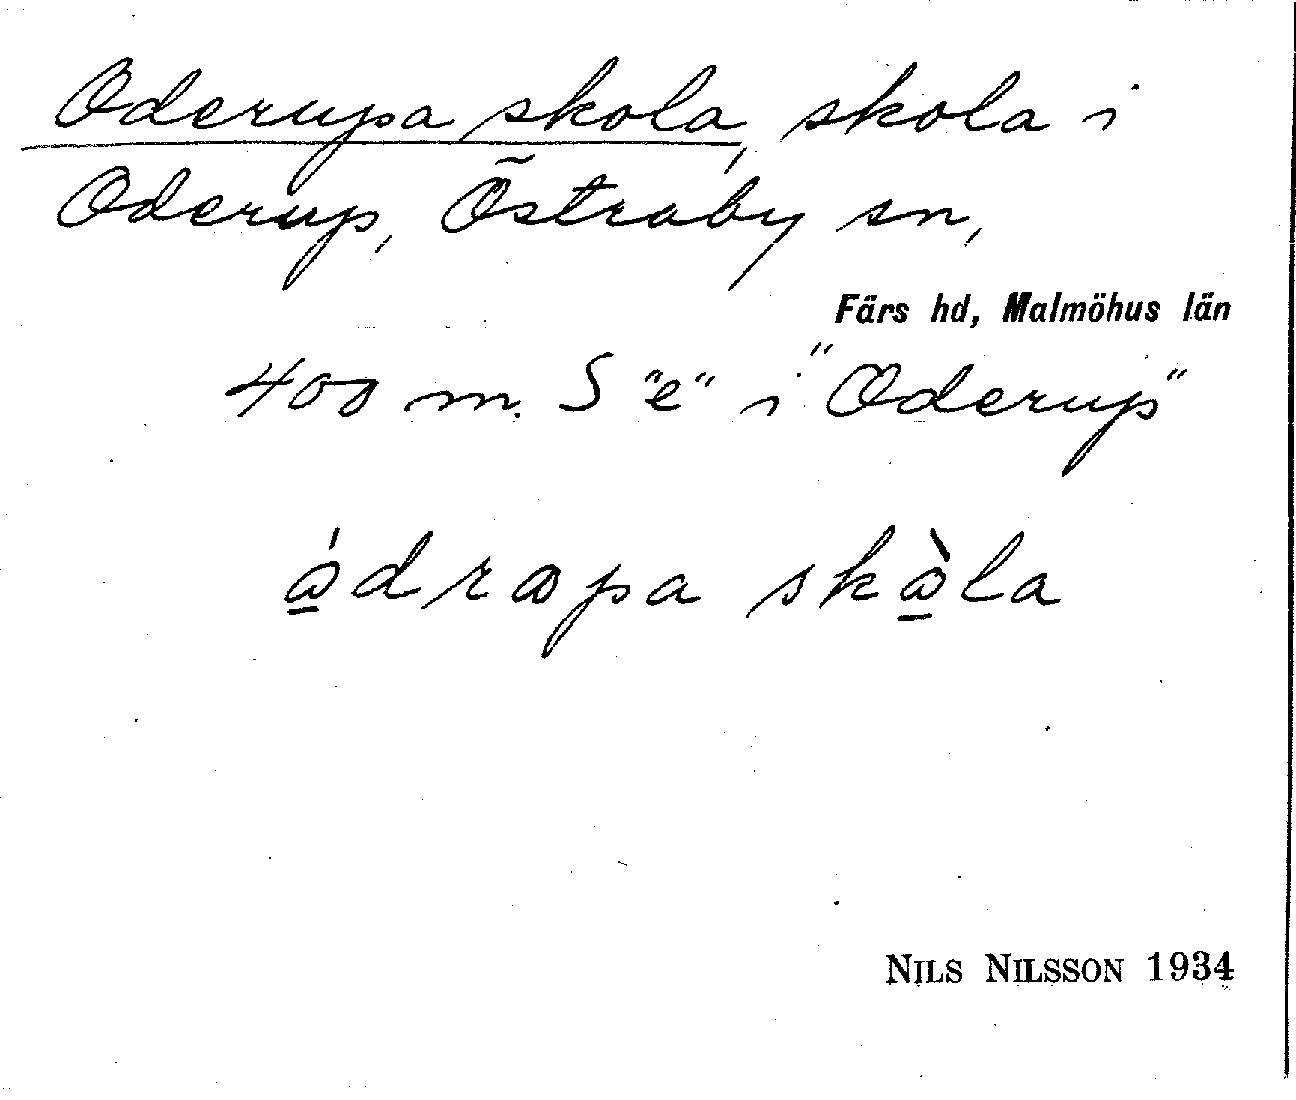 Oderupa skola, skola i
Oderup, Östraby sn,
Färs hd, Malmöhus län
400 m. S "e" i "Oderup"
ɷ̠́drɷpa skɷ̠̀la
NILS NILSSON 1934